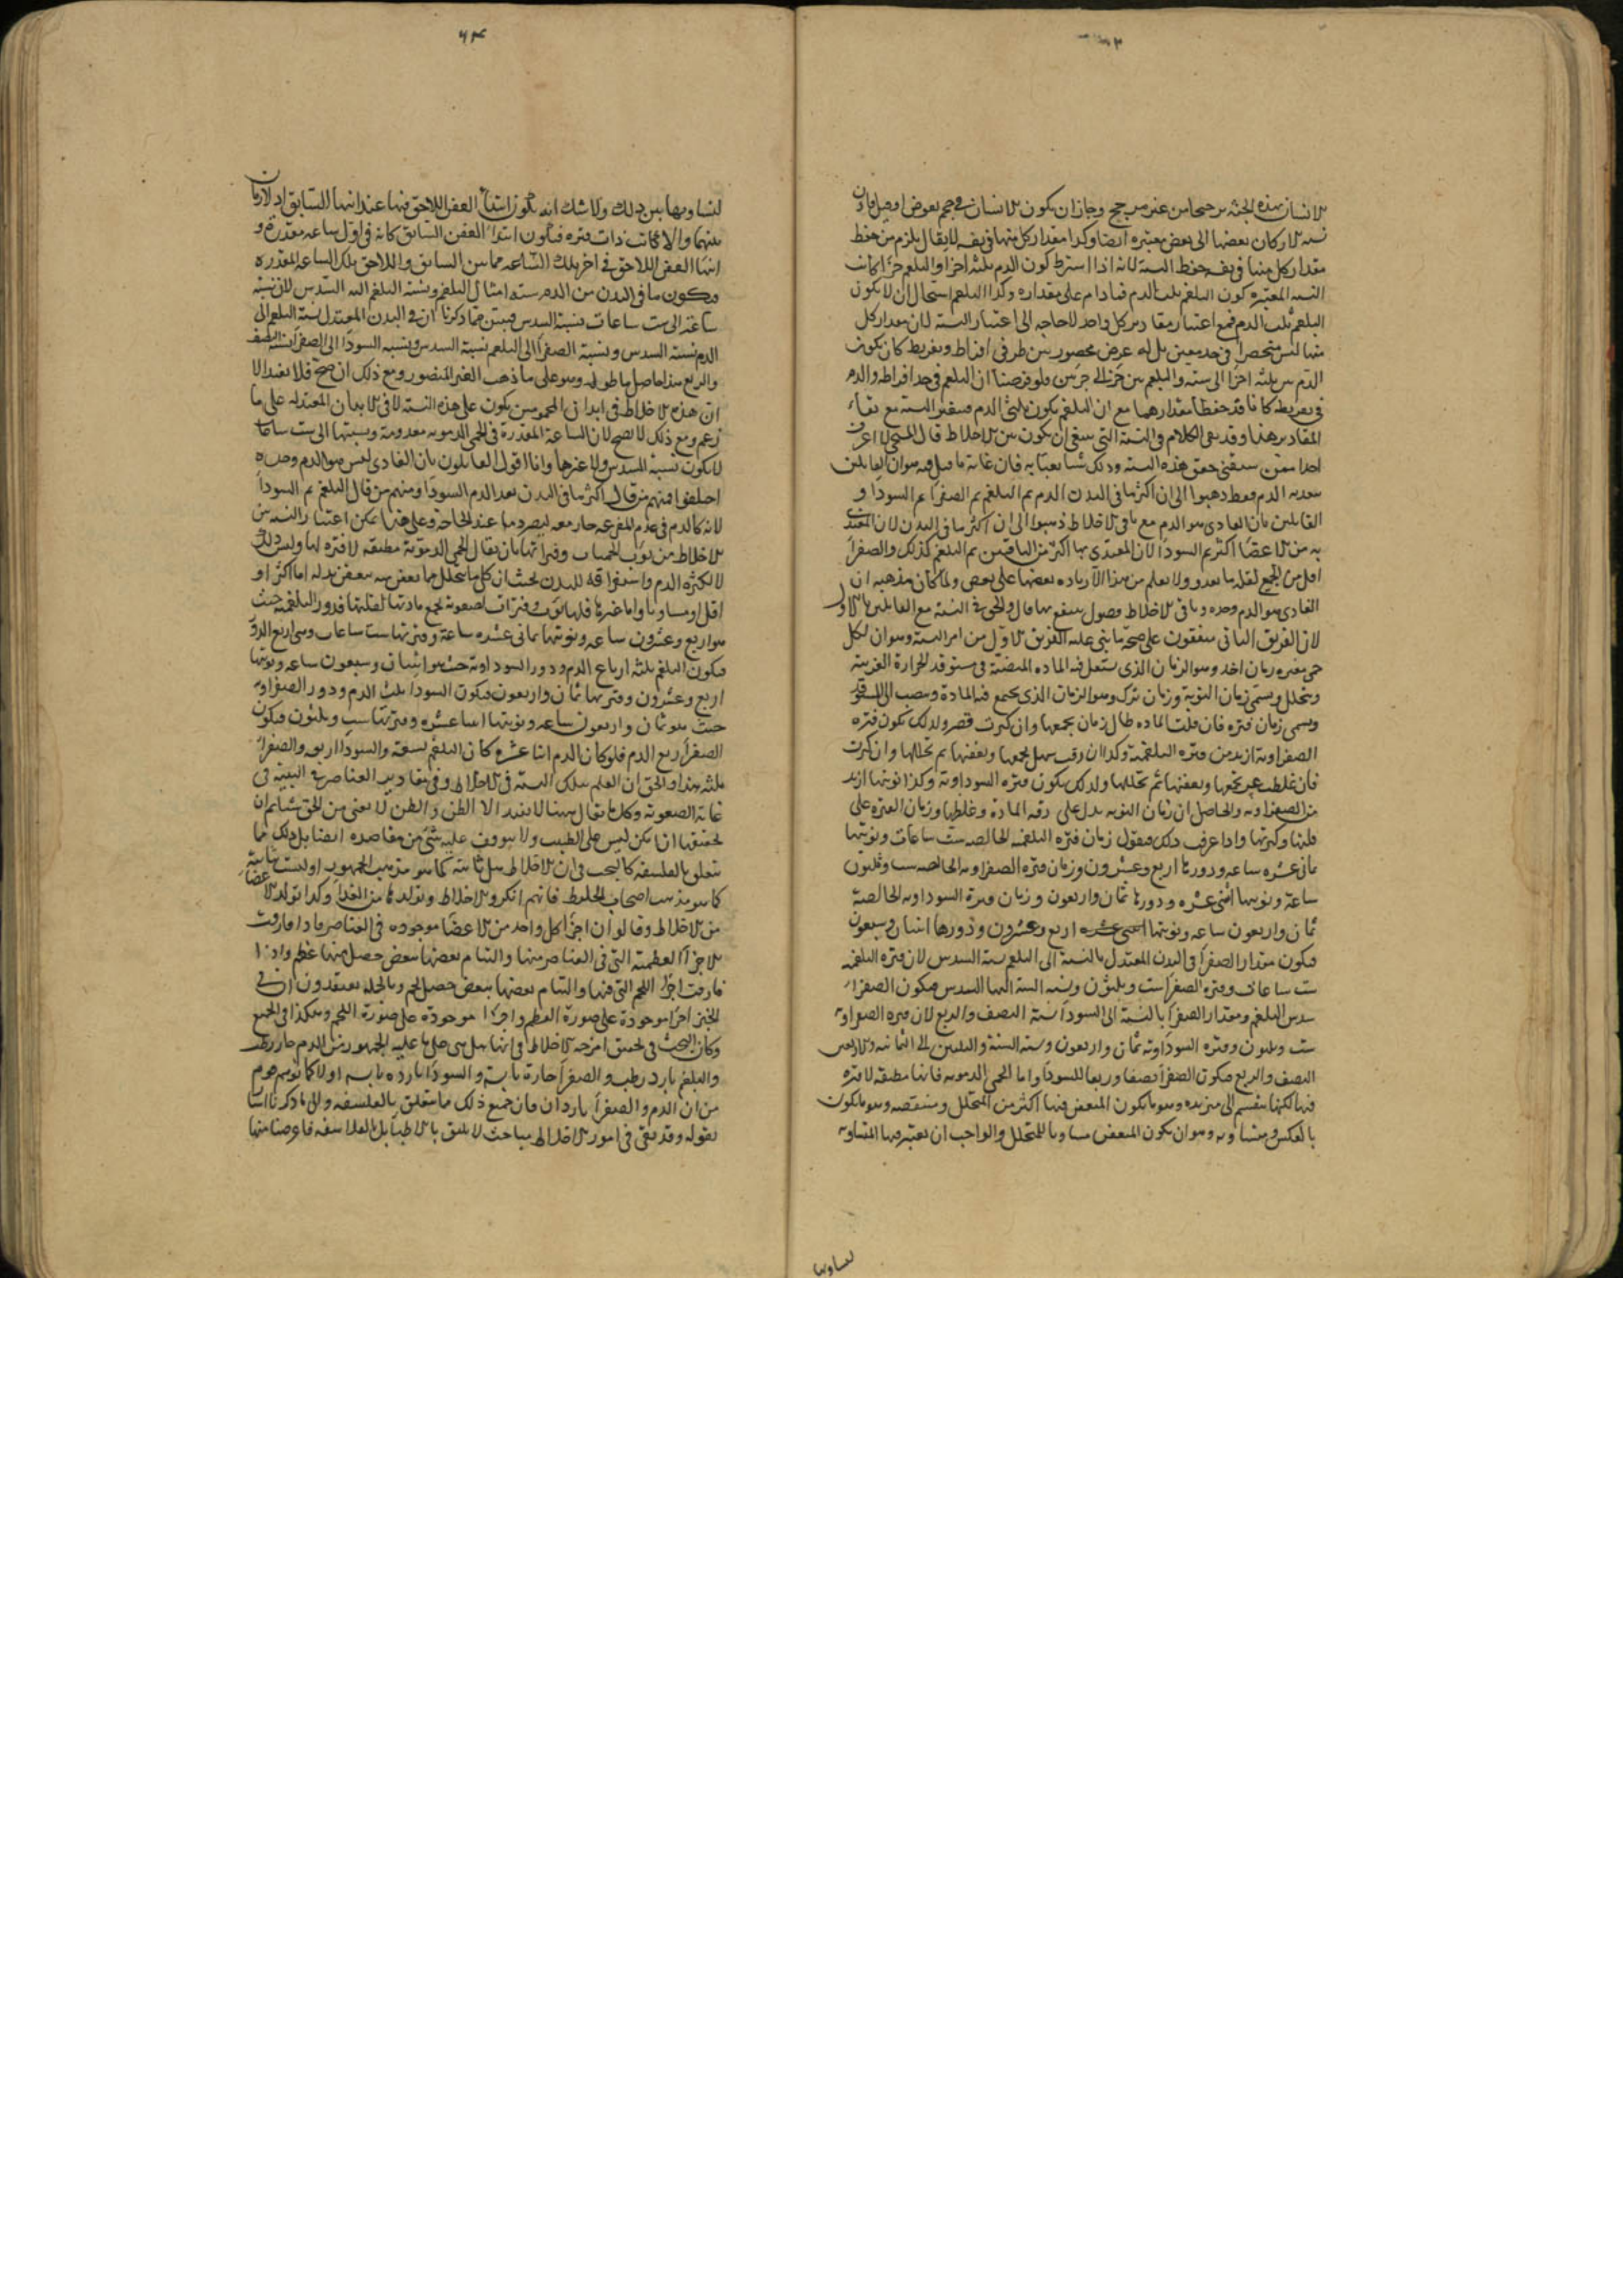 الانسان بهذه الجثة ترجيحا من غير مرجح وجاز ان يكون للانسان في حجم بعوض او فيل فاذن
نسبة الاركان بعضها الى بعض معتبرة ايضا وكذا مقدار كل منها في نفسه لا يقال يلزم من حفظ
مقدار كل منها في نفسه حفظ النسبة لانه اذا اشترط كون الدم ثلثة اجزا والبلغم جزءا كانت
النسبة المعتبرة كون البلغم ثلث الدم فما دام على مقداره وكذا البلغم استحال ان لا يكون
البلغم ثلث الدم فمع اعتبار مقادير كل واحد لا حاجة الى اعتبار النسبة لان مقدار كل
منها ليس منحصرا في حد معين بل له عرض محصور بين طرفي افراط وتفريط كان يكون
الدم من ثلثة اجزا الى ستة والبلغم من جزء الى جزءين فلو فرضنا ان البلغم في حد افراطه والدم
في تفريطه كانا قد حفظا مقدارهما مع ان البلغم يكون ثلثي الدم فيتغير النسبة مع بقاء
المقادير هذا وقد بقي الكلام في النسبة التي ينبغي ان يكون بين الاخلاط قال المسيحي لا اعرف
احدا ممن سبقني حقق هذه النسبة وذكر شيئا يعبا به فان غاية ما قيل فيه هو ان القايلين
بتغذية الدم فقط ذهبوا الى ان اكثر ما في البدن الدم ثم البلغم ثم الصفرا ثم السودا و
القايلين بان الغاذي هو الدم مع باقي الاخلاط ذهبوا الى ان اكثر ما في البدن لان المغتذي
به من الاعضا اكثر ثم السودا لان المغتذي بها اكثر من الباقيين ثم البلغم كذلك والصفرا
اقل من الجميع لقلة ما يغذو ولا يعلم من هذا الا زيادة بعضها على بعض ولما كان مذهبه ان
الغاذي هو الدم وحده وباقي الاخلاط فضول ينتفع بها قال والحق في النسبة مع القايلين بالاول
لان الفريق الثاني متفقون على صحة ما بنى عليه الفريق الاول من امر النسبة وهو ان لكل
حمى مفترة زمان اخذ وهو الزمان الذي يشتعل فيه المادة المنصبة في مستوقد الحرارة الغريبة
ويتحلل ويسمى زمان النوبة وزمان ترك وهو الزمان الذي يجتمع فيه المادة وينصب الى المستوقد
ويسمى زمان فترة فان قلت المادة طال زمان تجمعها وان كثرت قصر ولذلك يكون فترة
الصفراوية ازيد من فترة البلغمية وكذا ان رقت سهل تجمعها وتعفنها ثم تحللها وان كثرت
فان غلظت عسر تجمعها وتعفنها ثم تحللها ولذلك يكون فترة السوداوية وكذا نوبتها ازيد
من الصفراوية والحاصل ان زمان النوبة يدل على رقة المادة وغلظها وزمان الفترة على
قلتها وكثرتها واذا عرفت ذلك فنقول زمان فترة البلغمية الخالصة ست ساعات ونوبتها
ثماني عشرة ساعة ودورها اربع وعشرون وزمان فترة الصفراوية الخالصة ست وثلثون
ساعة ونوبتها اثني عشرة ودورها ثمان واربعون وزمان فترة السوداوية الخالصة
ثمان واربعون ساعة ونوبتها اربع وعشرون ودورها اثنتان وسبعون
فيكون مقدار الصفرا في البدن المعتدل بالنسبة الى البلغم نسبة السدس لان فترة البلغمية
ست ساعات وفترة الصفرا ست وثلثون ونسبة الستة اليها السدس فيكون الصفرا
سدس البلغم ومقدار الصفرا بالنسبة الى السودا نسبة النصف والربع لان فترة الصفراوية
ست وثلثون وفترة السوداوية ثمان واربعون ونسبة الستة والثلثين الى الثمانية والاربعين
النصف والربع فيكون الصفرا نصفا وربعا للسودا واما الحمى الدموية فانها مطبقة لا فترة
فيها لكنها تنقسم الى متزيدة وهو ما يكون المتعفن فيها اكثر من المتحلل ومتنقصة وهو ما يكون
بالعكس ومتساوية وهو ان يكون المتعفن مساويا للمتحلل والواجب ان يعتبر فيها المتساوية
لتساويها
٦٣
لتساويها بين ذلك ولا شك انه يكون ابتدا العفن اللاحق فيها عند انتها السابق اذ لا زمان
بينهما والا لكانت ذات فترة فيكون ابتدا العفن السابق كانه في اول ساعة مقدرة و
انتها العفن اللاحق في اخر تلك الساعة فما بين السابق واللاحق تلك الساعة المقدرة
فيكون ما في البدن من الدم ستة امثال البلغم ونسبة البلغم اليه السدس لان نسبة
ساعة الى ست ساعات نسبة السدس فتبين مما ذكرنا ان في البدن المعتدل نسبة البلغم الى
الدم نسبة السدس ونسبة الصفرا الى البلغم نسبة السدس ونسبة السودا الى الصفرا نسبة النصف
والربع هذا حاصل ما طوله وهو على ما ذهب الغير المنصور ومع ذلك ان صح فلا يفيد الا
ان هذه الاخلاط في ابدان المحمومين يكون على هذه النسبة لا في الابدان المعتدلة على ما
زعم ومع ذلك لا يصح لان الساعة المقدرة في الحمى الدموية معدومة ونسبتها الى ست ساعات
لا يكون نسبة السدس ولا غيرها وانا اقول القايلون بان الغاذي ليس هو الدم وحده
اختلفوا فمنهم من قال اكثر ما في البدن بعد الدم السودا ومنهم من قال البلغم ثم السودا
لانه كالدم في عدم المفرغة جار معه ليصير دما عند الحاجة وعلى هذا يمكن اعتبار النسبة بين
الاخلاط من نوب الحميات وفتراتها بان يقال الحمى الدموية مطبقة لا فترة لها وليس ذلك
لا لكثرة الدم واستغراقه للبدن بحيث ان كل ما يتحلل مما تعفن منه يتعفن بدله اما اكثر او
اقل او مساويا واما غيرها فلها نوب وفترات لصعوبة تجمع مادتها لقلتها فدور البلغمية حيث
هو اربع وعشرون ساعة ونوبتها ثماني عشرة ساعة وفترتها ست ساعات وهي اربع الدور
فيكون البلغم ثلثة ارباع الدم ودور السوداوية حيث هو اثنتان وسبعون ساعة ونوبتها
اربع وعشرون وفترتها ثمان واربعون فيكون السودا ثلث الدم ودور الصفراوية
حيث هو ثمان واربعون ساعة ونوبتها اثنا عشرة وفترتها ست وثلثون فيكون
الصفرا ربع الدم فلو كان الدم اثنا عشرة كان البلغم تسعة والسودا اربعة والصفرا
ثلثة هذا والحق ان العلم بتلك النسبة في الاخلاط وفي مقادير العناصر في البنية في
غاية الصعوبة وكل ما يقال هنا لا يفيد الا الظن والظن لا يغني من الحق شيئا ثم ان
تحقيقها ان امكن ليس على الطبيب ولا يتوقف عليه شيء من مقاصده ايضا بل ذلك مما
يتعلق بالفلسفة كالبحث في ان الاخلاط هل ثابتة كما هو مذهب الجمهور او ليست ثابتة
كما هو مذهب اصحاب الخليط فانهم انكروا الاخلاط وتولدها من الغذا وكذا تولد الاعضا
من الاخلاط وقالوا ان اجزا كل واحد من الاعضا موجودة في العناصر فاذا فارقت
الاجزا العظمية التي في العناصر منها والتئام بعضها ببعض حصل منها عظم واذا
فارقت اجزا اللحم التي فيها والتئام بعضها ببعض حصل لحم وبالجملة يعتقدون ان في
الخبز اجزا موجودة على صورة العظم واجزا موجودة على صورة اللحم وهكذا في الجميع
وكان البحث في تحقيق امزجة الاخلاط في انها هل هي على ما عليه الجمهور من الدم حار رطب
والبلغم بارد رطب والصفرا حارة يابسة والسودا باردة يابسة او لا كما توهم قوم
من ان الدم والصفرا باردان فان جميع ذلك ما يتعلق بالفلسفة والى ما ذكرنا اشار
بقوله وقد بقي في امور الاخلاط مباحث لا يليق بالاطبا بل بالفلاسفة فاعرضنا عنها